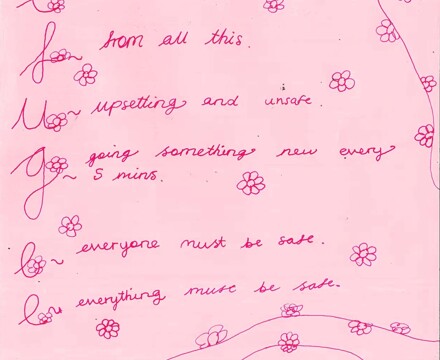 f~ from all this.
u~ upsetting and unsafe.
g~ going something new every
5 mins.
e~ everyone must be safe.
e~ everything must be safe.